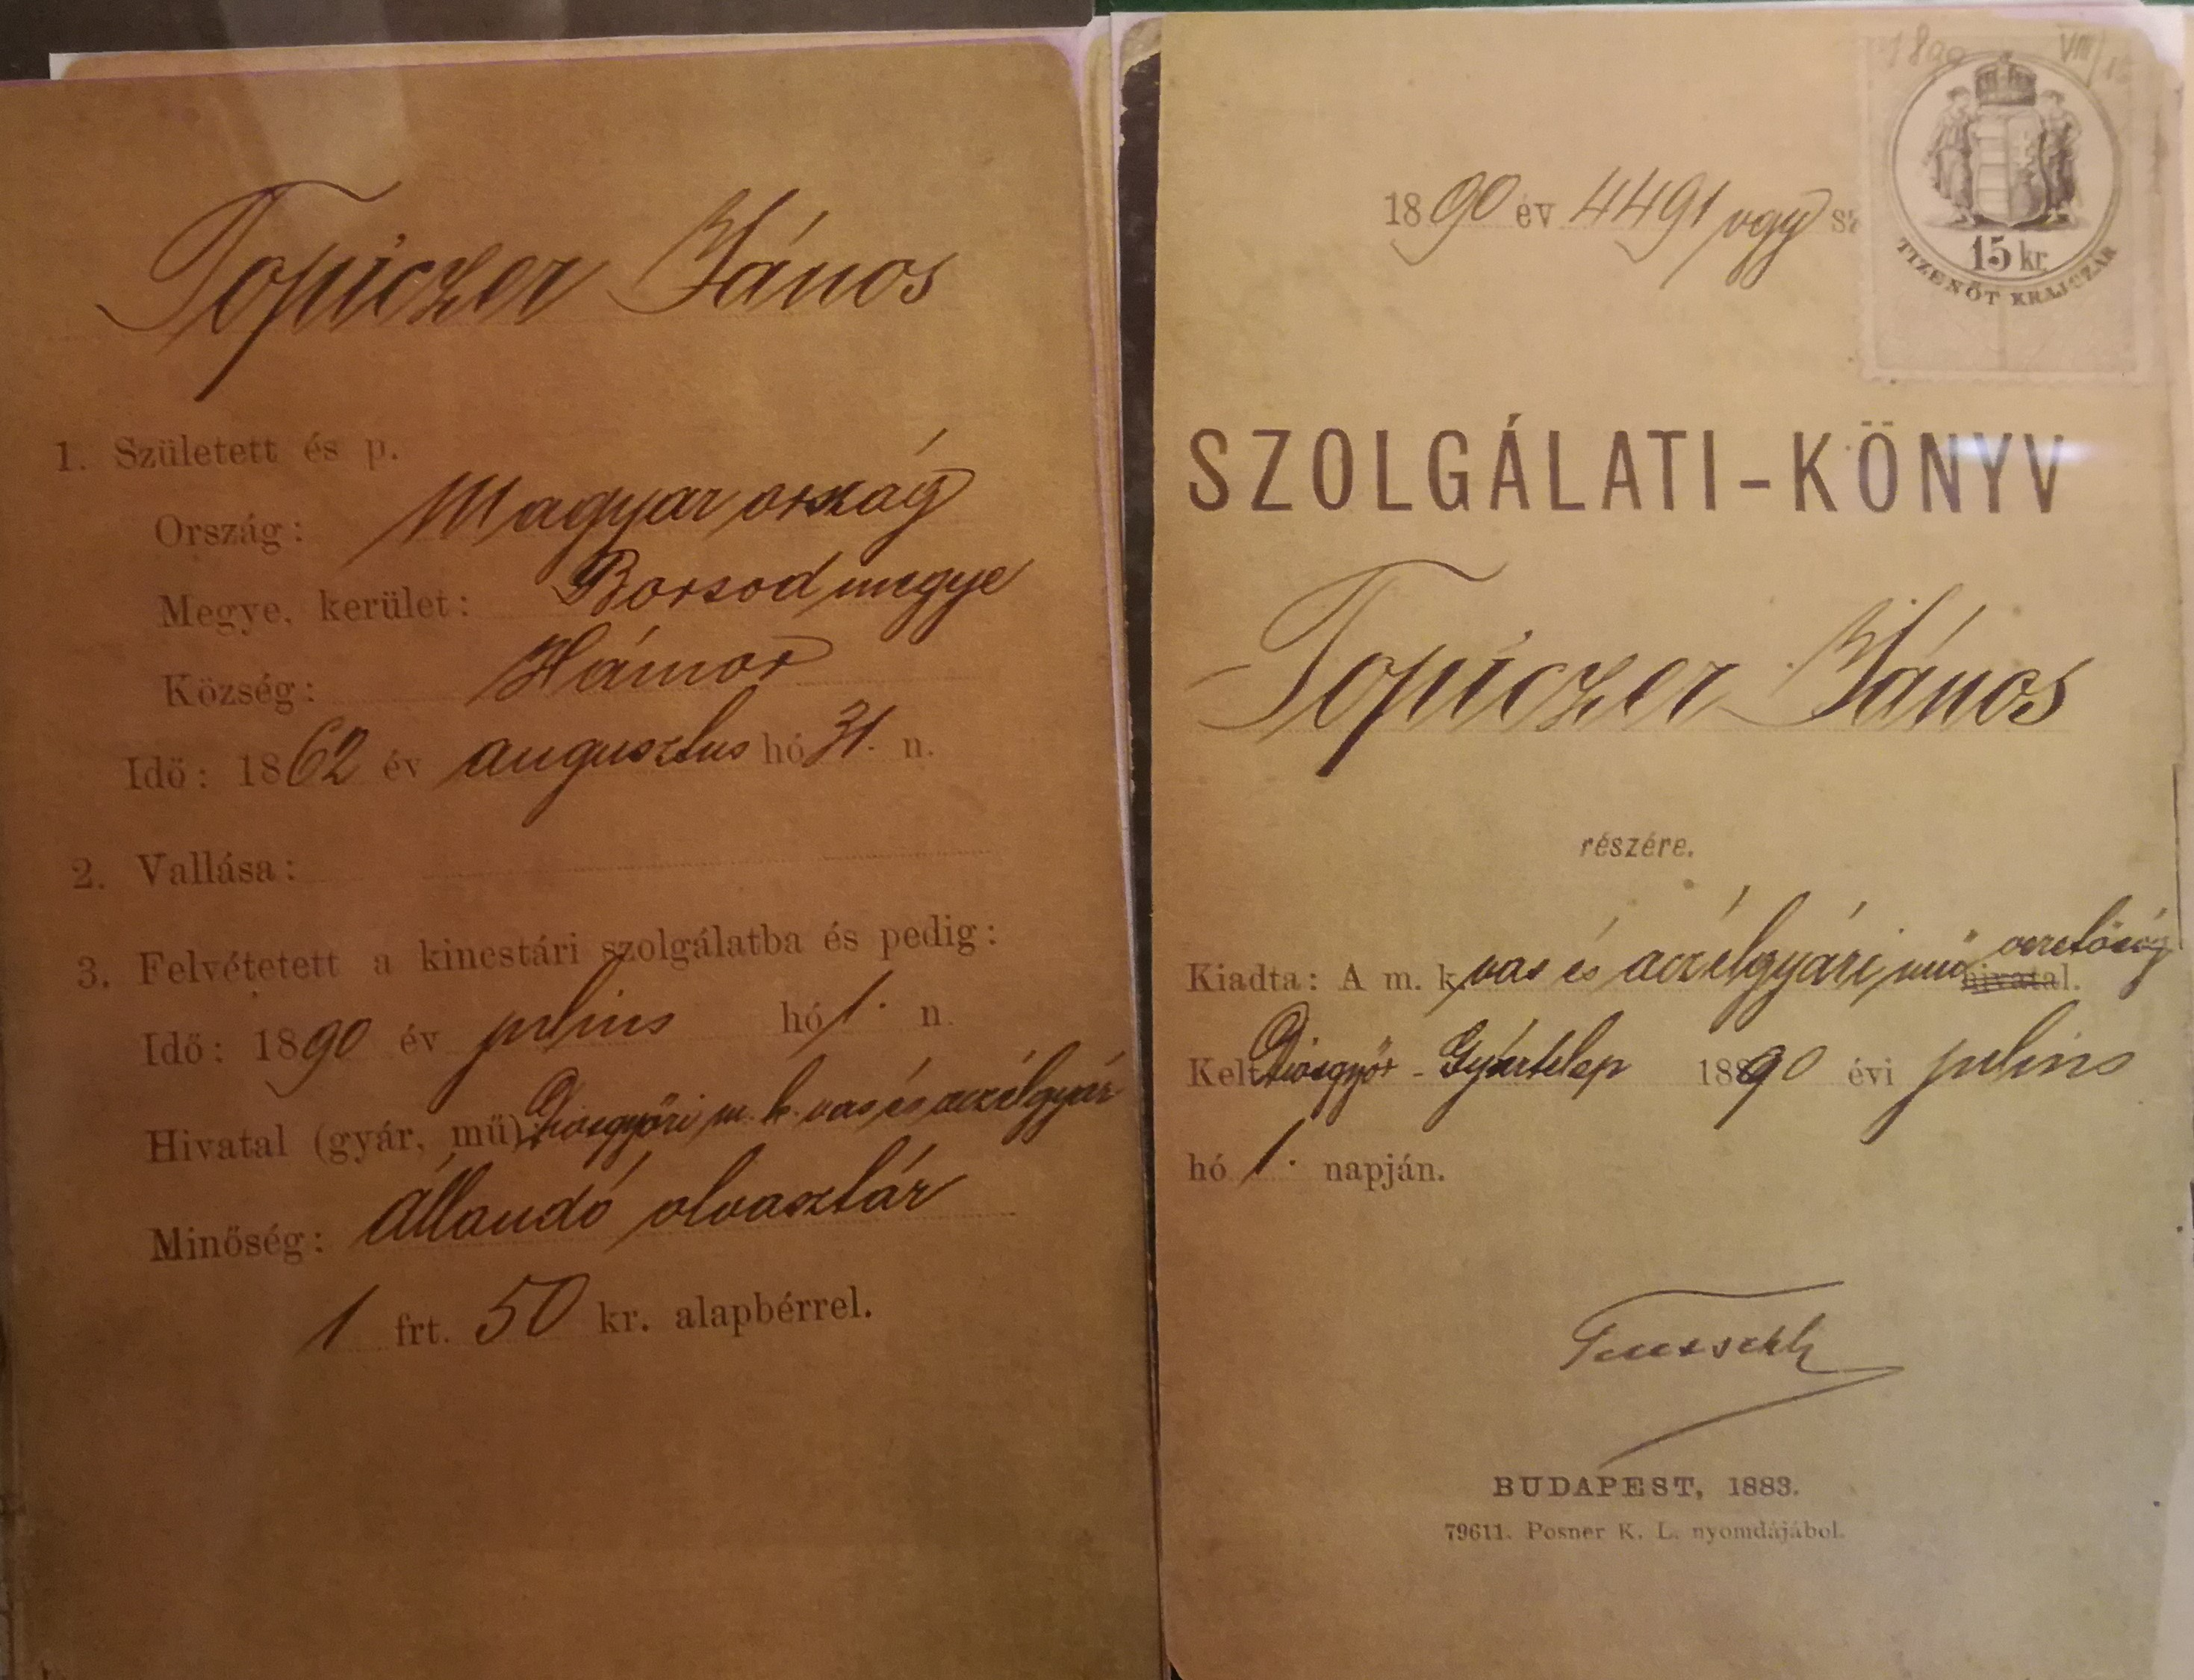 Topiczer János
1. Született és p.
Ország: Magyarország
Megye, kerület: Borsod megye
Község: Hámor
Idő: 1862 év augusztus hó 31. n.
2. Vallása:
3. Felvétetett a kincstári szolgálatba és pedig:
Idő: 1890 év julius hó 1. n.
Hivatal (gyár, mű) Diósgyőri m. k. vas és aczélgyár
Minőség: állandó olvasztár
1 frt. 50 kr. alapbérrel.
1890 VIII/
1890 év 4491 sz
15 kr.
TIZENÖT KRAJCZÁR
SZOLGÁLATI-KÖNYV
Topiczer János
részére.
Kiadta: A m. k. vas és aczélgyári művezetőség hivatal.
Kelt Diósgyőr - Gyártelep 1890 évi julius
hó 1. napján.
BUDAPEST, 1883.
79611. Posner K. L. nyomdájából.